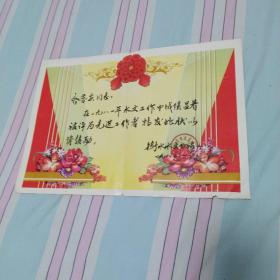 同志：
在一九八一年水文工作中成绩显著
被评为先进工作者特发此状以
资鼓励。